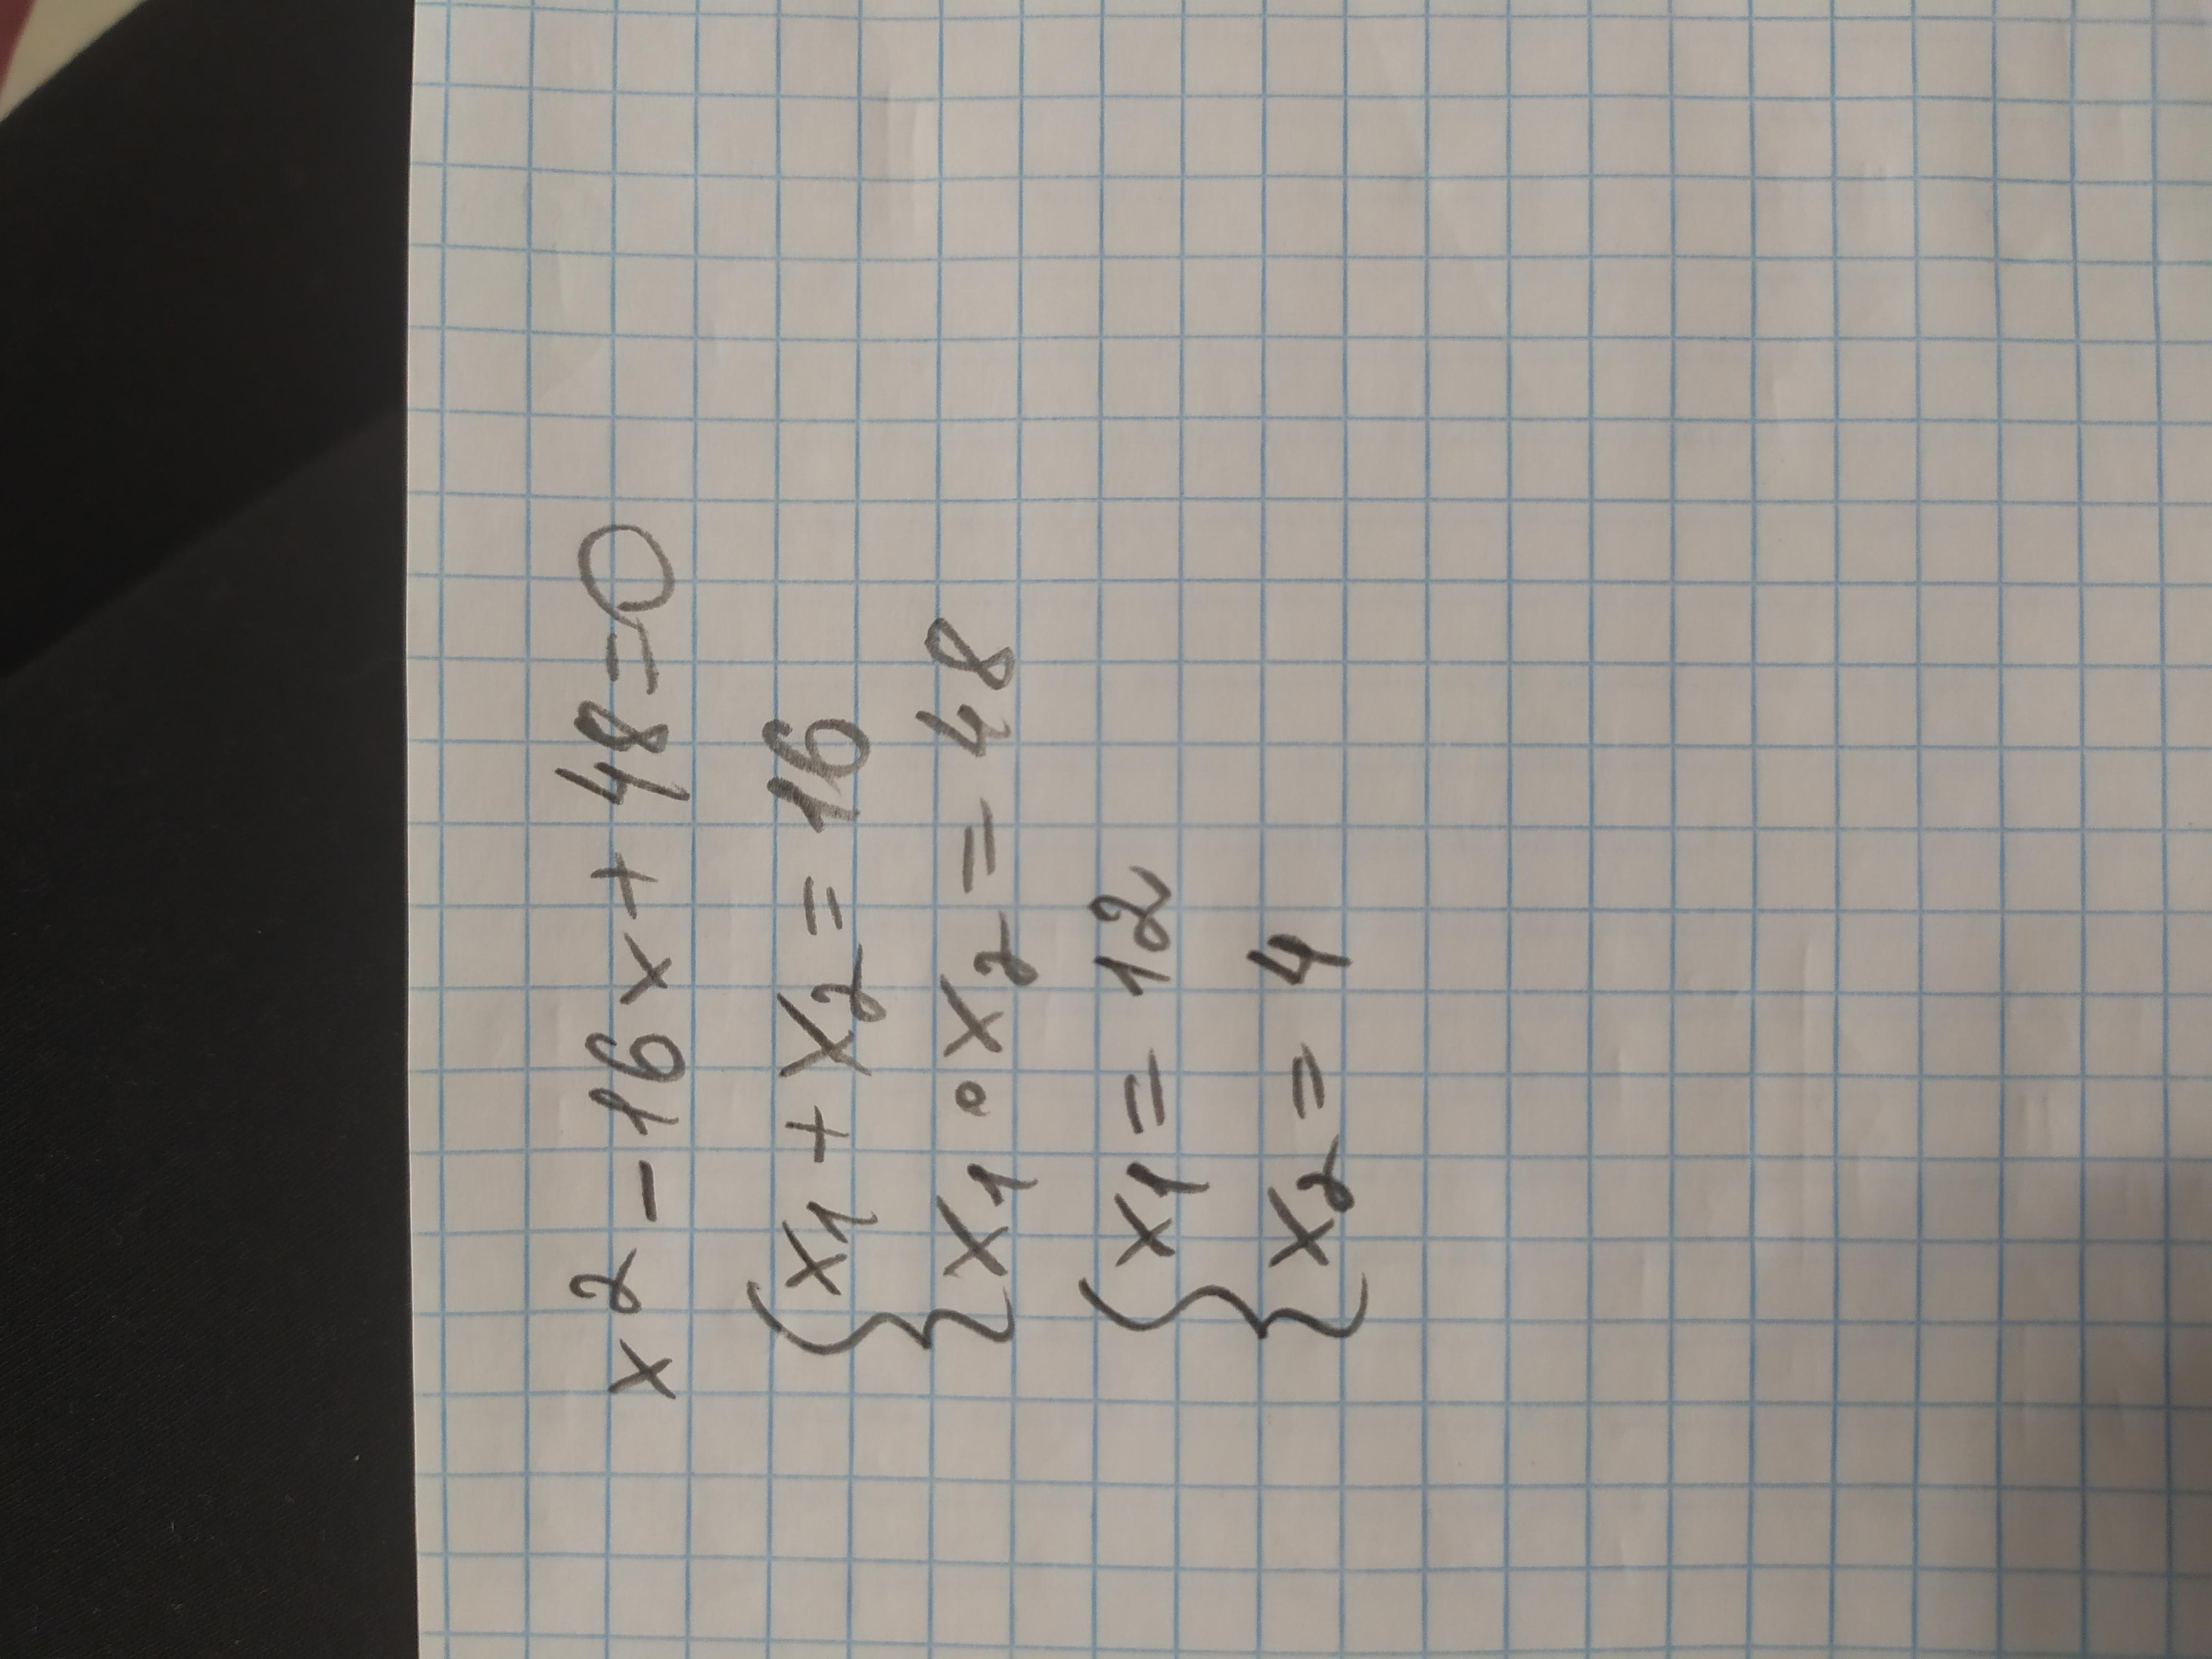 x² - 16x + 48 = 0
{ x₁ + x₂ = 16
{ x₁ ∘ x₂ = 48
{ x₁ = 12
{ x₂ = 4